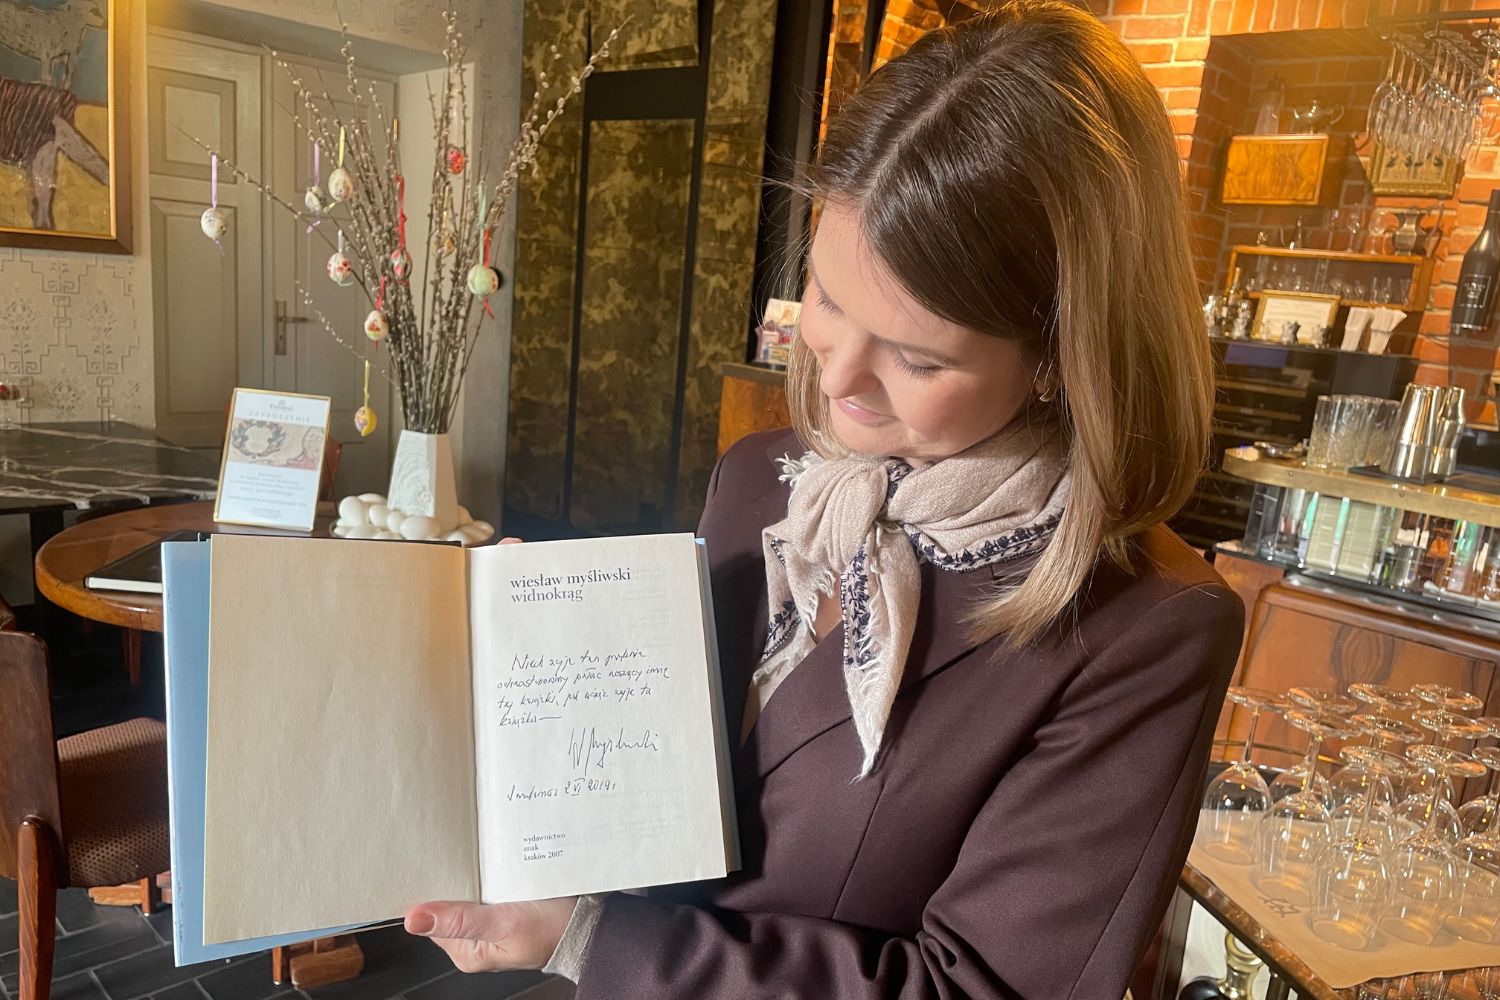 ZAPROSZENIE
wiesław myśliwski
widnokrąg
Niech żyje ten pięknie
odrestaurowany pałac noszący imię
tej książki, jak wciąż żyje ta
książka—
W Myśliwski
Sandomierz 2 VI 2019 r.
wydawnictwo
znak
kraków 2007